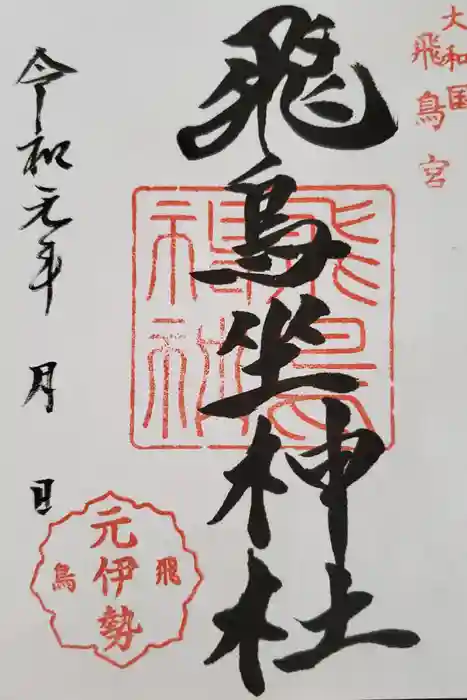 大和国
飛鳥宮
飛鳥坐神社
飛鳥
神社
令和元年 月 日
元伊勢
飛鳥